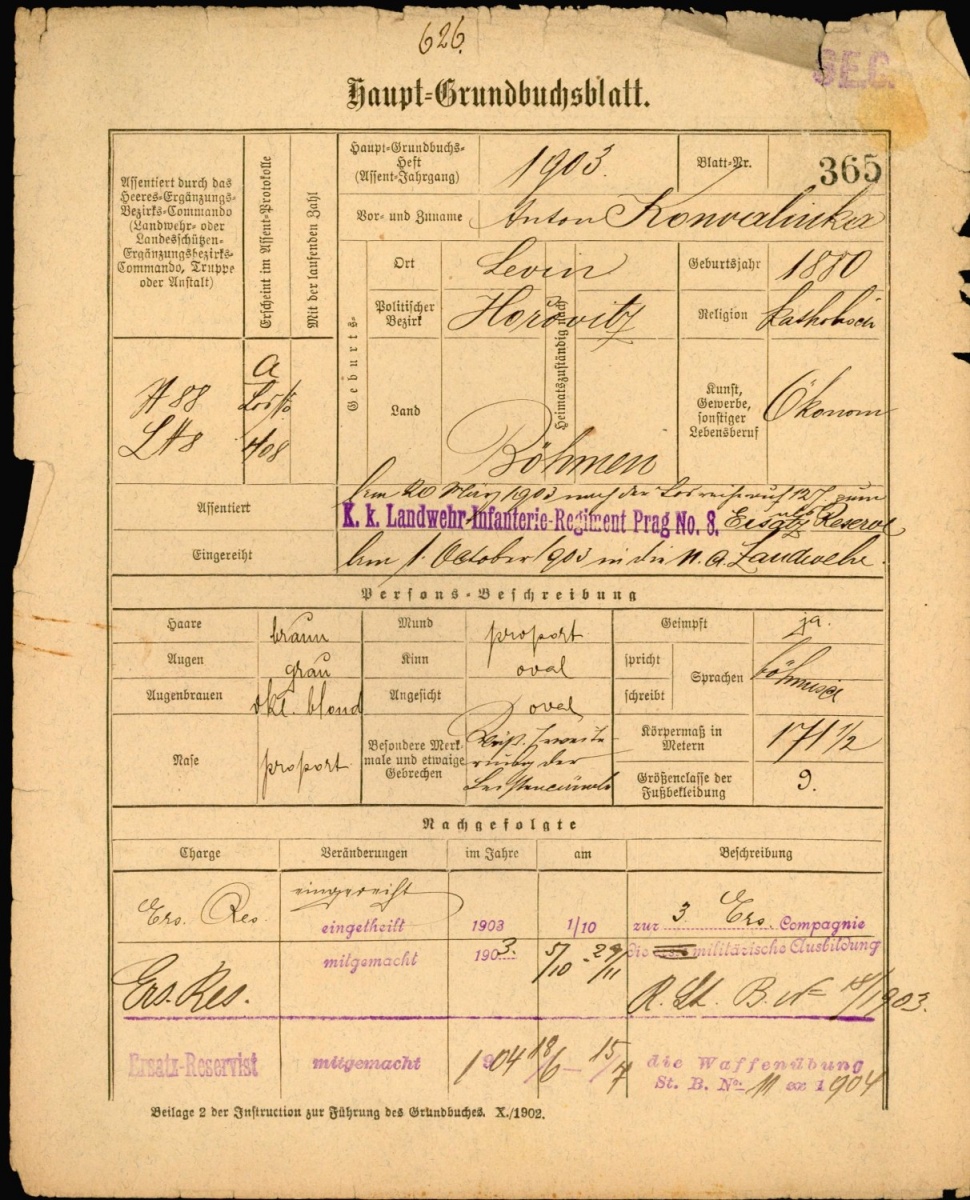 626.
GEC.
Haupt-Grundbuchsblatt.
Assentiert durch das
Heeres-Ergänzungs-
Bezirks-Commando
(Landwehr- oder
Landesschützen-
Ergänzungsbezirks-
Commando, Truppe
oder Anstalt)
Erscheint im Assent-Protokolle
Mit der laufenden Zahl
Haupt-Grundbuchs-
Heft
(Assent-Jahrgang)
1903.
Blatt-Nr.
365
Vor- und Zuname
Anton Konvalinka
Geburts-
Ort
Levin
Geburtsjahr
1880
Politischer
Bezirk
Hořovitz
Heimatszuständig nach
Religion
katholisch
Land
Böhmen
Kunst,
Gewerbe,
sonstiger
Lebensberuf
Ökonom
H 88
LH8
A
4/08
Assentiert
Am 20 März 1903 nach der Losreihe auf 12 J. zum
K. k. Landwehr-Infanterie-Regiment Prag No. 8. als
Ersatz Reserve
Eingereiht
Am 1. October 1903 in die n. a. Landwehr.
Persons-Beschreibung
Haare
braun
Mund
proport
Geimpft
ja.
Augen
grau
Kinn
oval
spricht
schreibt
Sprachen
böhmisch
Augenbrauen
dkl. blond
Angesicht
oval
Nase
proport
Besondere Merk-
male und etwaige
Gebrechen
Erweite-
rung der
Leistencanäle
Körpermaß in
Metern
171 1/2
Größenclasse der
Fußbekleidung
9.
Nachgefolgte
Charge
Veränderungen
im Jahre
am
Beschreibung
Ers. Res.
eingereiht
eingetheilt
1903
1/10
zur 3 Ers. Compagnie
mitgemacht
1903.
5/10 - 29/11
die militärische Ausbildung
Ers. Res.
R. St. B. No 18/1903.
Ersatz-Reservist
mitgemacht
1904
18/6 - 15/7
die Waffenübung
St. B. No. 11 ex 1904
Beilage 2 der Instruction zur Führung des Grundbuches. X./1902.